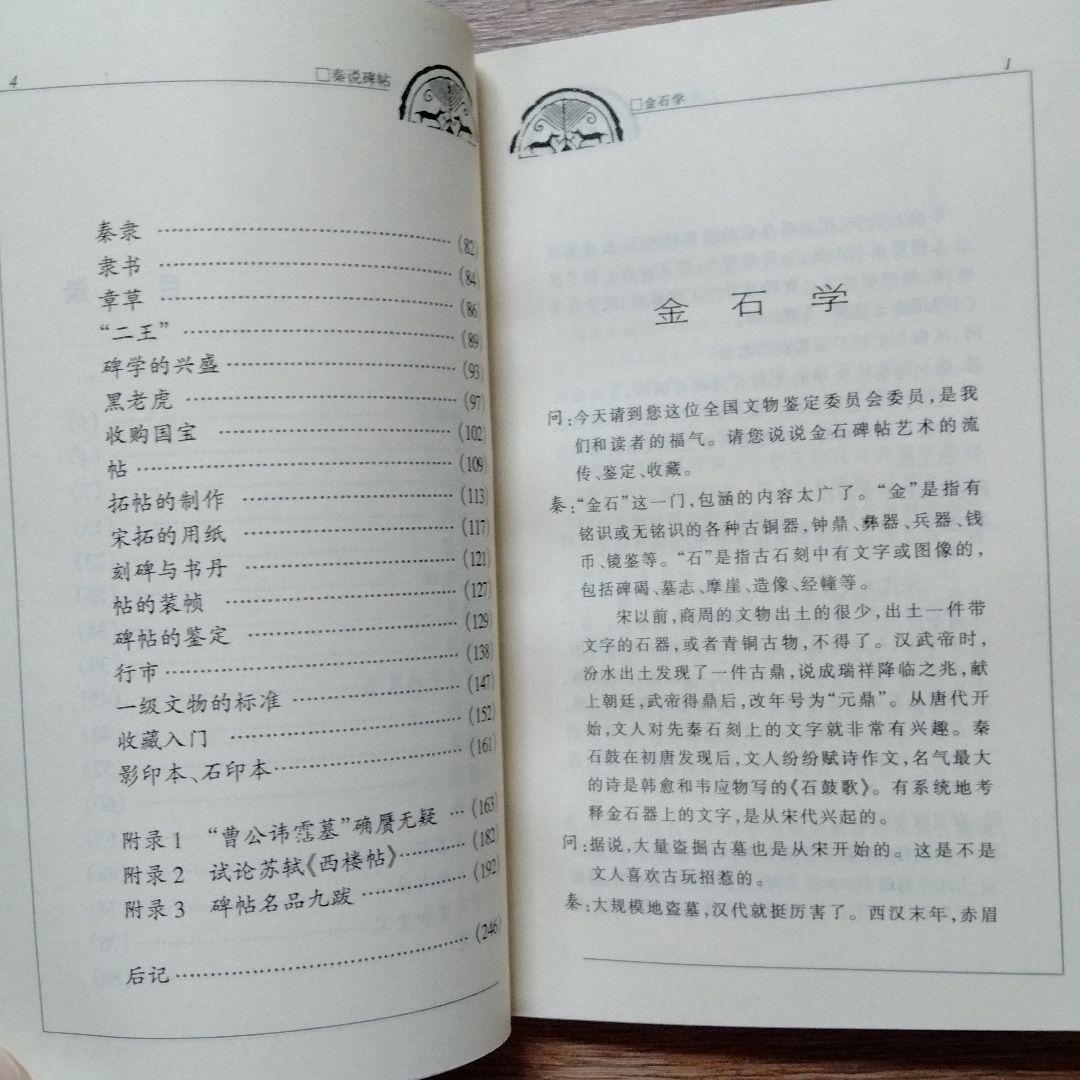 4
□秦说碑帖
秦隶 …… (82)
隶书 …… (84)
章草 …… (86)
“二王” …… (89)
碑学的兴盛 …… (93)
黑老虎 …… (97)
收购国宝 …… (102
帖 …… (109)
拓帖的制作 …… (113)
宋拓的用纸 …… (117)
刻碑与书丹 …… (121)
帖的装帧 …… (127)
碑帖的鉴定 …… (129)
行市 …… (138)
一级文物的标准 …… (147)
收藏入门 …… (152)
影印本、石印本 …… (161)
附录1 “曹公讳霑墓”确赝无疑 … (163)
附录2 试论苏轼《西楼帖》 …… (182)
附录3 碑帖名品九跋 …… (192)
后记 …… (246)
1
□金石学
金石学
问:今天请到您这位全国文物鉴定委员会委员,是我
们和读者的福气。请您说说金石碑帖艺术的流
传、鉴定、收藏。
秦:“金石”这一门,包涵的内容太广了。“金”是指有
铭识或无铭识的各种古铜器,钟鼎、彝器、兵器、钱
币、镜鉴等。“石”是指古石刻中有文字或图像的,
包括碑碣、墓志、摩崖、造像、经幢等。
宋以前,商周的文物出土的很少,出土一件带
文字的石器,或者青铜古物,不得了。汉武帝时,
汾水出土发现了一件古鼎,说成瑞祥降临之兆,献
上朝廷,武帝得鼎后,改年号为“元鼎”。从唐代开
始,文人对先秦石刻上的文字就非常有兴趣。秦
石鼓在初唐发现后,文人纷纷赋诗作文,名气最大
的诗是韩愈和韦应物写的《石鼓歌》。有系统地考
释金石器上的文字,是从宋代兴起的。
问:据说,大量盗掘古墓也是从宋开始的。这是不是
文人喜欢古玩招惹的。
秦:大规模地盗墓,汉代就挺厉害了。西汉末年,赤眉